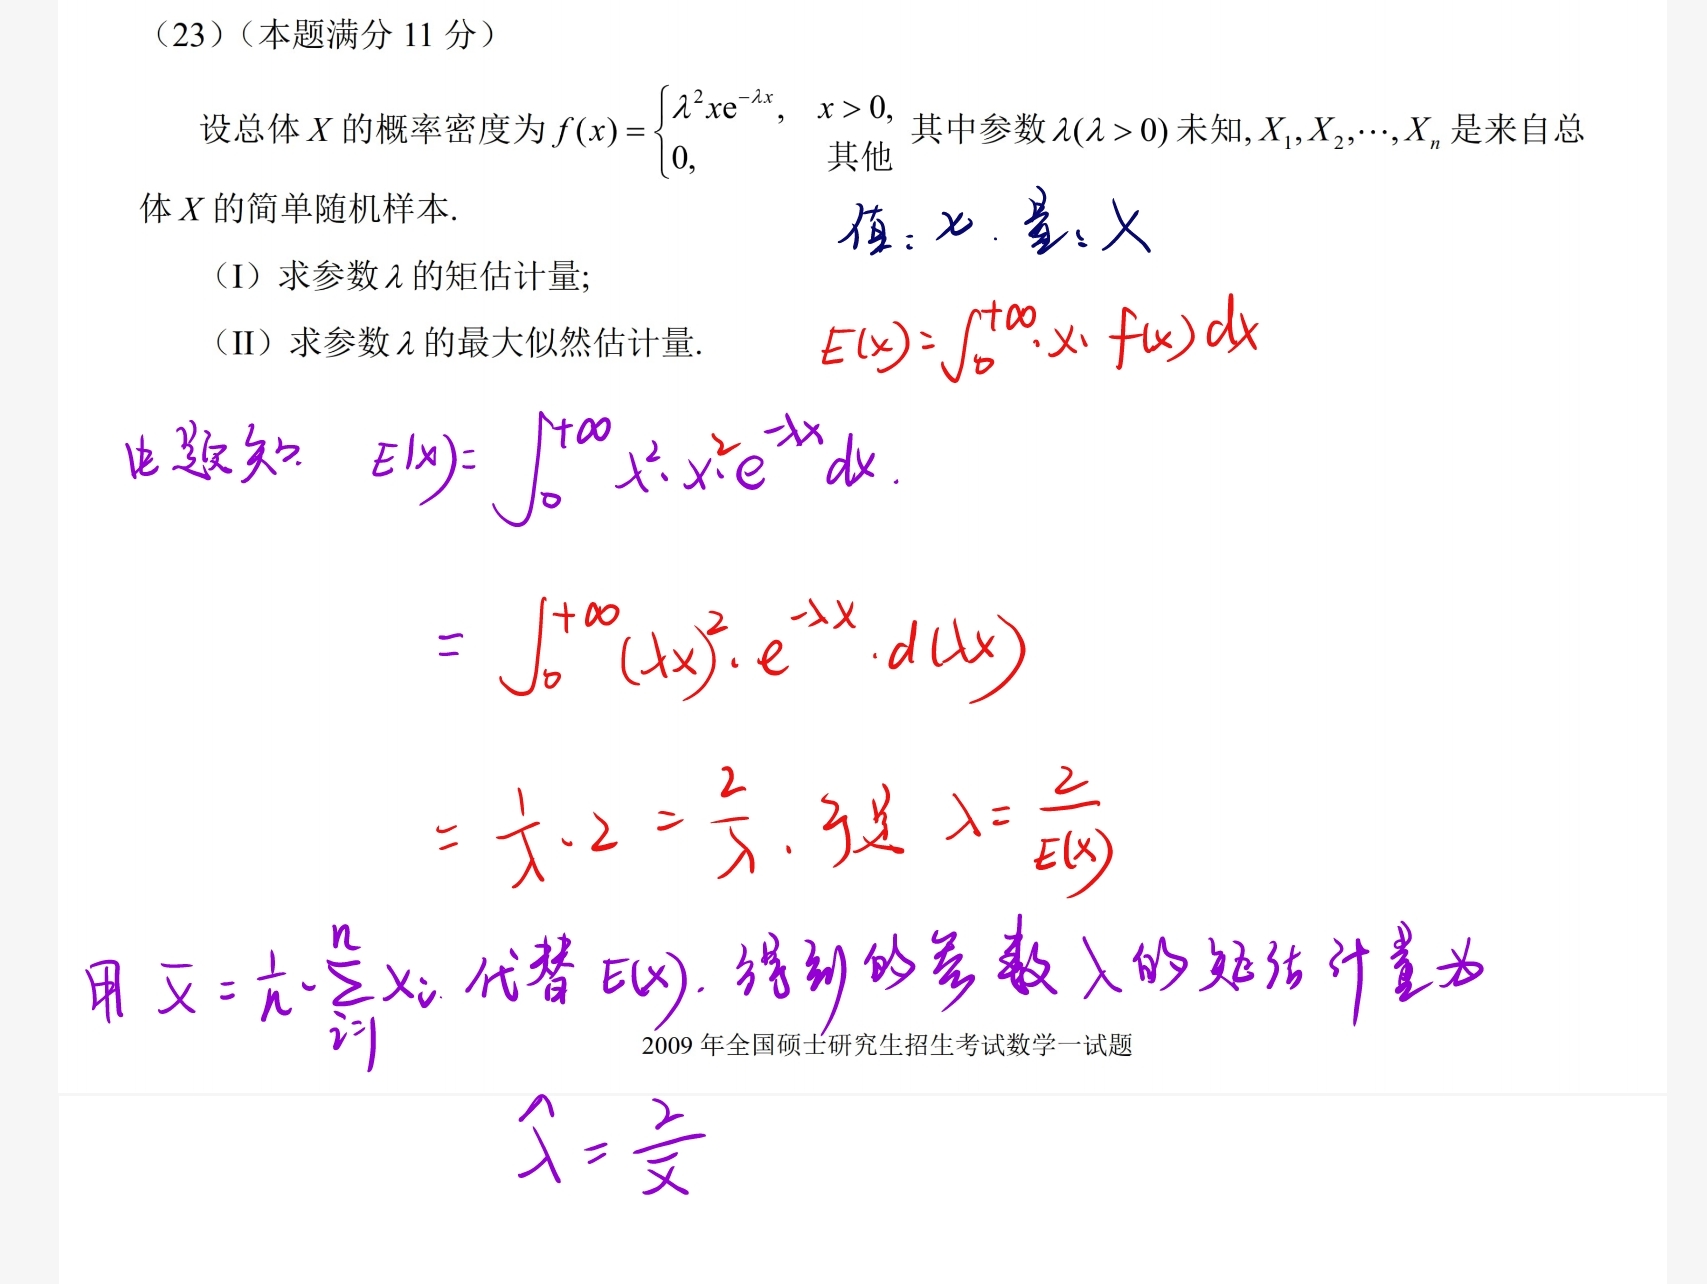 （23）（本题满分 11 分）
设总体 X 的概率密度为 f(x) = { λ²xe^{-λx}, x > 0, 0, 其他 其中参数 λ(λ > 0) 未知, X₁, X₂, ⋯, Xₙ 是来自总
体 X 的简单随机样本.
值：x . 量：X
（I）求参数 λ 的矩估计量;
（II）求参数 λ 的最大似然估计量.
E(x) = ∫₀^{+∞} · x · f(x) dx
由题知 E(x) = ∫₀^{+∞} λ² · x² · e^{-λx} dx .
= ∫₀^{+∞} (λx)² · e^{-λx} · d(λx)
= 1/λ · 2 = 2/λ . 于是 λ = 2/E(X)
用 X̅ = 1/n · ∑_{i=1}^{n} Xi 代替 E(X) . 得到的参数 λ 的矩估计量为
2009 年全国硕士研究生招生考试数学一试题
λ̂ = 2/X̅